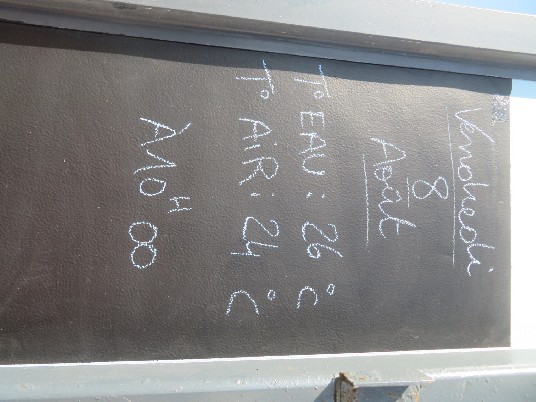 Vendredi
8
Août
T° EAU : 26 °C
T° AiR : 24 °C
À 10H 08